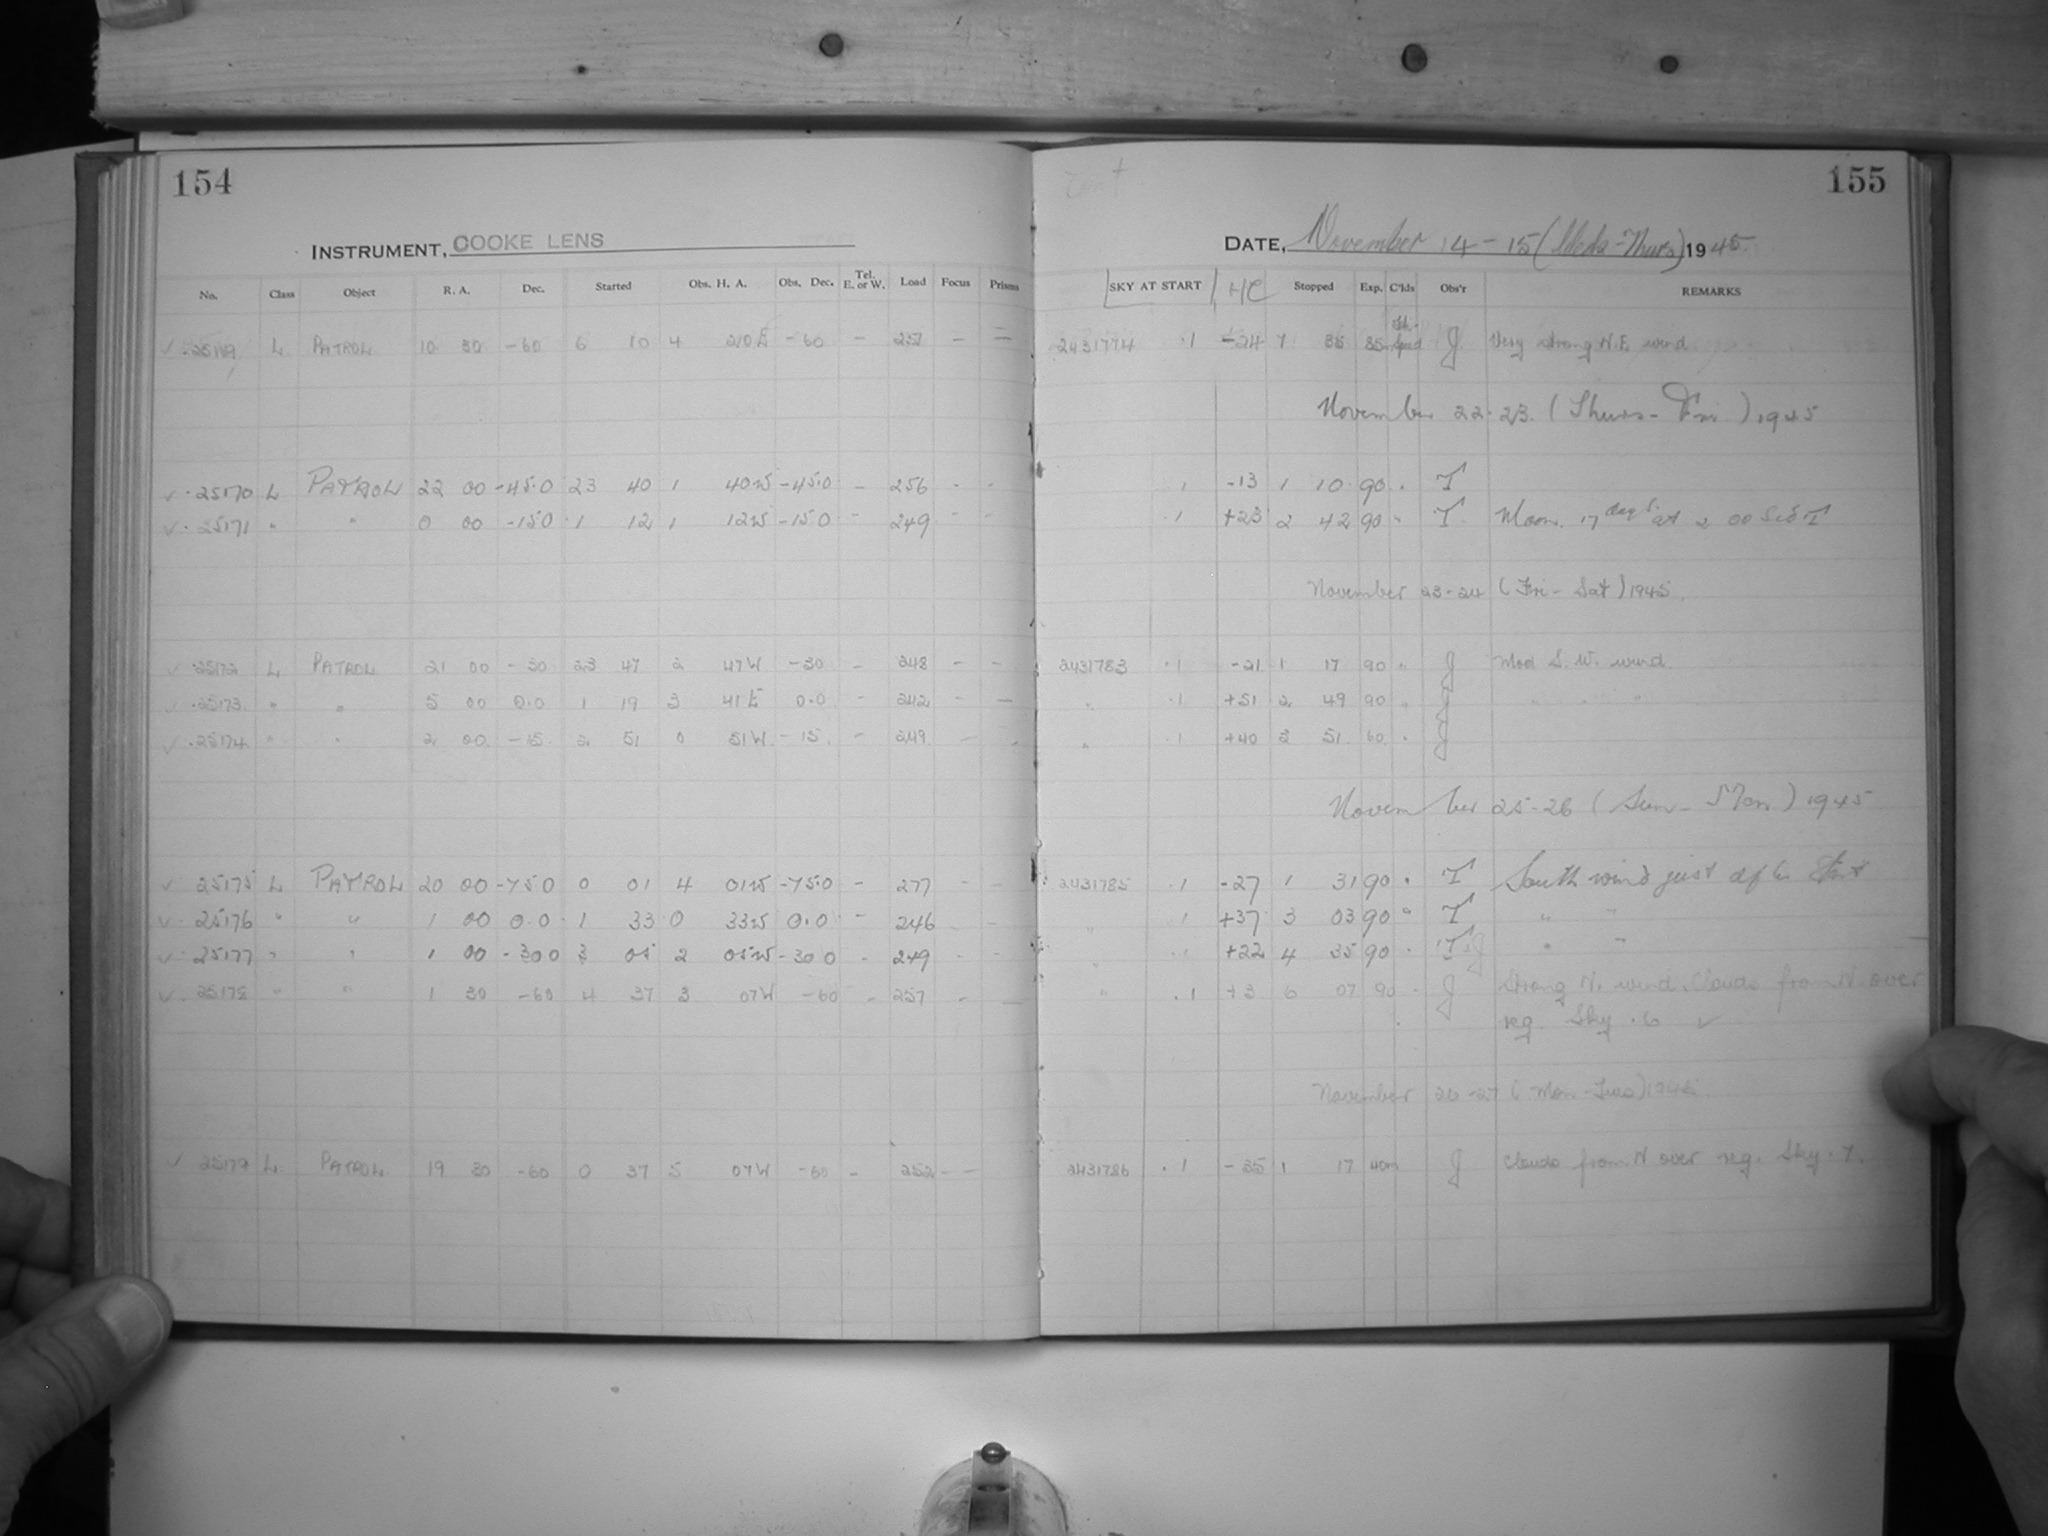 154
INSTRUMENT, COOKE LENS
No. Class Object R. A. Dec. Started Obs. H. A. Obs. Dec. Tel. E. or W. Load Focus Prisms
25169 L PATROL 10 30 -60 6 10 4 210 E -60 - 251 - =
25170 L PATROL 22 00 -45.0 23 40 1 40 W -45.0 - 256 - -
25171 " " 0 00 -15.0 1 12 1 12 W -15.0 - 249 - -
25172 L PATROL 21 00 -30 23 47 2 47 W -30 - 248 - -
25173 " " 5 00 0.0 1 19 3 41 E 0.0 - 242 - -
25174 " " 2 00 -15 2 51 0 51 W -15 - 249 - -
25175 L PATROL 20 00 -75.0 0 01 4 01 W -75.0 - 277 - -
25176 " " 1 00 0.0 1 33 0 33 W 0.0 - 246 - -
25177 " " 1 00 -30.0 3 05 2 05 W -30.0 - 249 - -
25178 " " 1 30 -60 4 37 3 07 W -60 - 257 - -
25179 L PATROL 19 30 -60 0 37 5 07 W -60 - 252 - -
155
DATE, November 14-15 (Weds-Thurs) 1945
SKY AT START HC Stopped Exp. C'lds Obs'r REMARKS
2431774 .1 -24 7 35 85 J Very strong N.E. wind
November 22-23 (Thurs-Fri) 1945
.1 -13 1 10 90 . T
.1 +23 2 42 90 " T Moon 17 days at 2 00 Sid T
November 23-24 (Fri-Sat) 1945
2431783 .1 -21 1 17 90 " J Mod S. W. wind
" .1 +51 2 49 90 " J " " "
" .1 +40 3 51 60 " J
November 25-26 (Sun-Mon) 1945
2431785 .1 -27 1 31 90 . T South wind just after start
" .1 +37 3 03 90 " T " "
" .1 +22 4 35 90 . T.J " "
" .1 +3 6 07 90 . J Strong N. wind. Clouds from N over
reg. Sky .6 ✓
November 26-27 (Mon-Tues) 1945
2431786 .1 -35 1 17 40m J Clouds from N over reg. Sky .7.